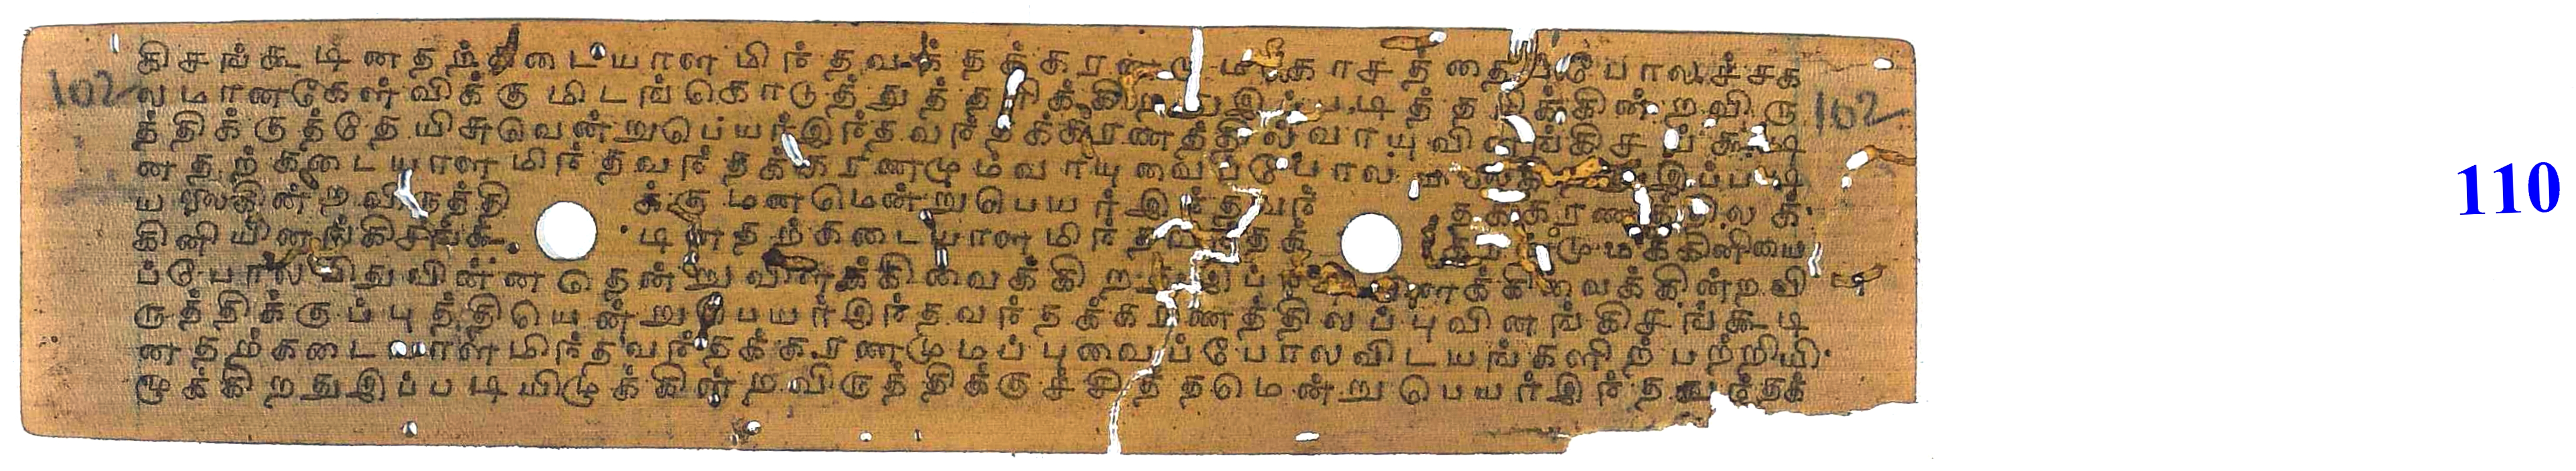 கிசங்கூடினதற்கடையாளமிந்தவந்தக்கரணமுமாகாசத்தைப்போலச்சக
லமானகேள்விக்குமிடங்கொடுத்துத்தரிக்கிறதுஇப்படித்தரிக்கின்றவிரு
த்திக்குத்தேயிசுவென்றுபெயர்இந்தவந்தக்கரணத்தில்வாயுவினங்கிசங்கூடி
னதற்கடையாளமிந்தவந்தக்கரணமும்வாயுவைப்போல இப்படி
யலகின்றவிருத்தி க்குமனமென்றுபெயர்இந்தவந் தக்கரணத்திலக்
கினியினங்கிசங்கூ டினதற்கடையாளமிந்தவந்தக் கரணமுமக்கினியை
ப்போலவிதுவின்னதென்றுவிளக்கிவைக்கிறதுஇப்படி விளக்கிவைக்கின்றவி
ருத்திக்குப்புத்தியென்றுபெயர்இந்தவந்தக்கரணத்திலப்புவினங்கிசங்கூடி
னதற்கடையாளமிந்தவந்தக்கரணமுமப்புவைப்போலவிடயங்களிற்பற்றியி
ழுக்கிறதுஇப்படியிழுக்கின்றவிருத்திக்குச்சித்தமென்றுபெயர்இந்தவந்தக்
102
102
110